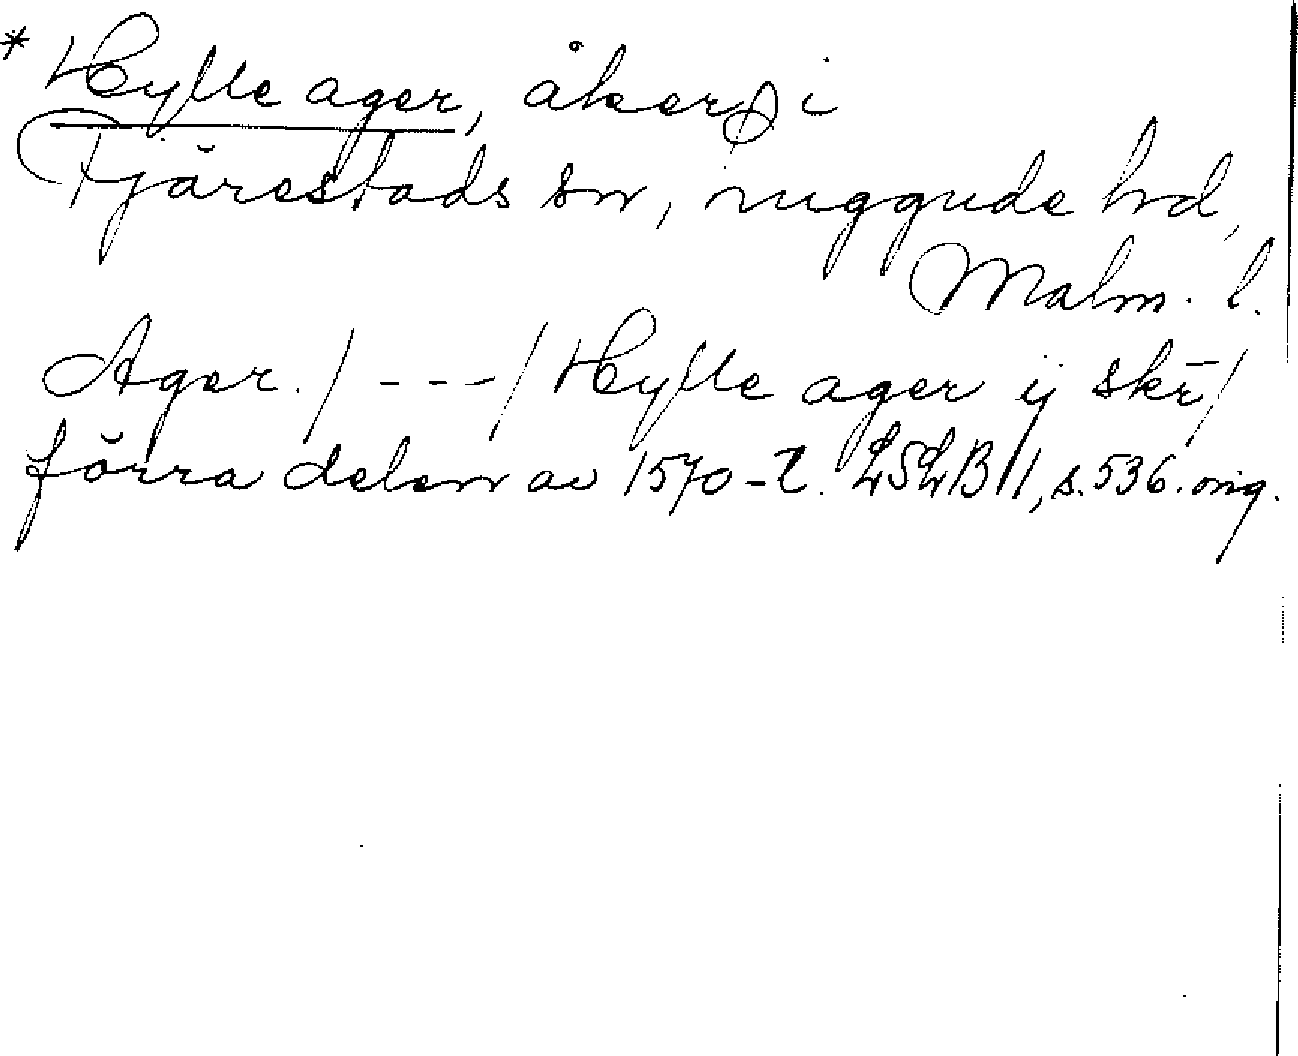 * Hylle ager, åker i
Fjärestads sn, Luggude hd,
Malm. l.
Ager. / - - - / Hylle ager ij skr̄ /
förra delen av 1570-t. LSLB II, s. 536. orig.